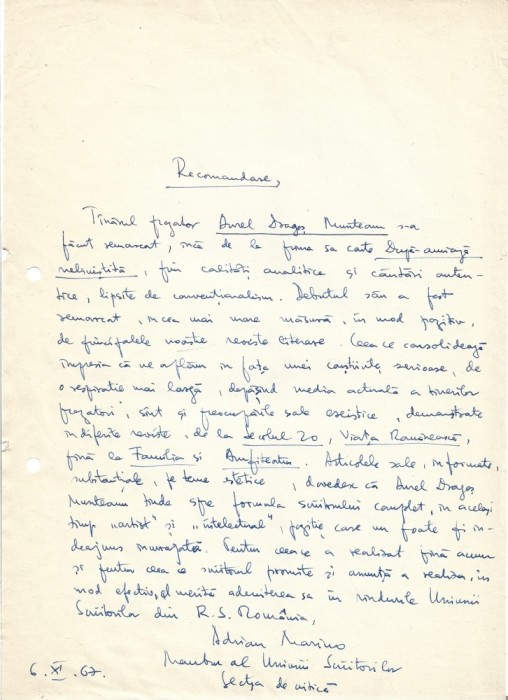 Recomandare,
Tînărul prozator Aurel Dragoş Munteanu s-a
făcut remarcat, încă de la prima sa carte După-amiază
neliniştită, prin calităţi analitice şi căutări auten-
tice, lipsite de convenţionalism. Debutul său a fost
remarcat, în cea mai mare măsură, în mod pozitiv,
de principalele noastre reviste literare. Ceea ce consolidează
impresia că ne aflăm în faţa unei conştiinţe serioase, de
o respiraţie mai largă, depăşind media actuală a tinerilor
prozatori, sînt şi preocupările sale eseistice, demonstrate
în diferite reviste, de la Secolul 20, Viaţa Românească,
pînă la Familia şi Amfiteatru. Articolele sale, informate,
substanţiale, pe teme estetice, dovedesc că Aurel Dragoş
Munteanu tinde spre formula scriitorului complet, în acelaşi
timp "artist" şi "intelectual", poziţie care nu poate fi în-
deajuns încurajată. Pentru ceea ce a realizat pînă acum
şi pentru ceea ce scriitorul promite şi anunţă a realiza, în
mod efectiv, el merită admiterea sa în rîndurile Uniunii
Scriitorilor din R.S. România,
Adrian Marino
Membru al Uniunii Scriitorilor
Secţia de critică
6.XI.67.